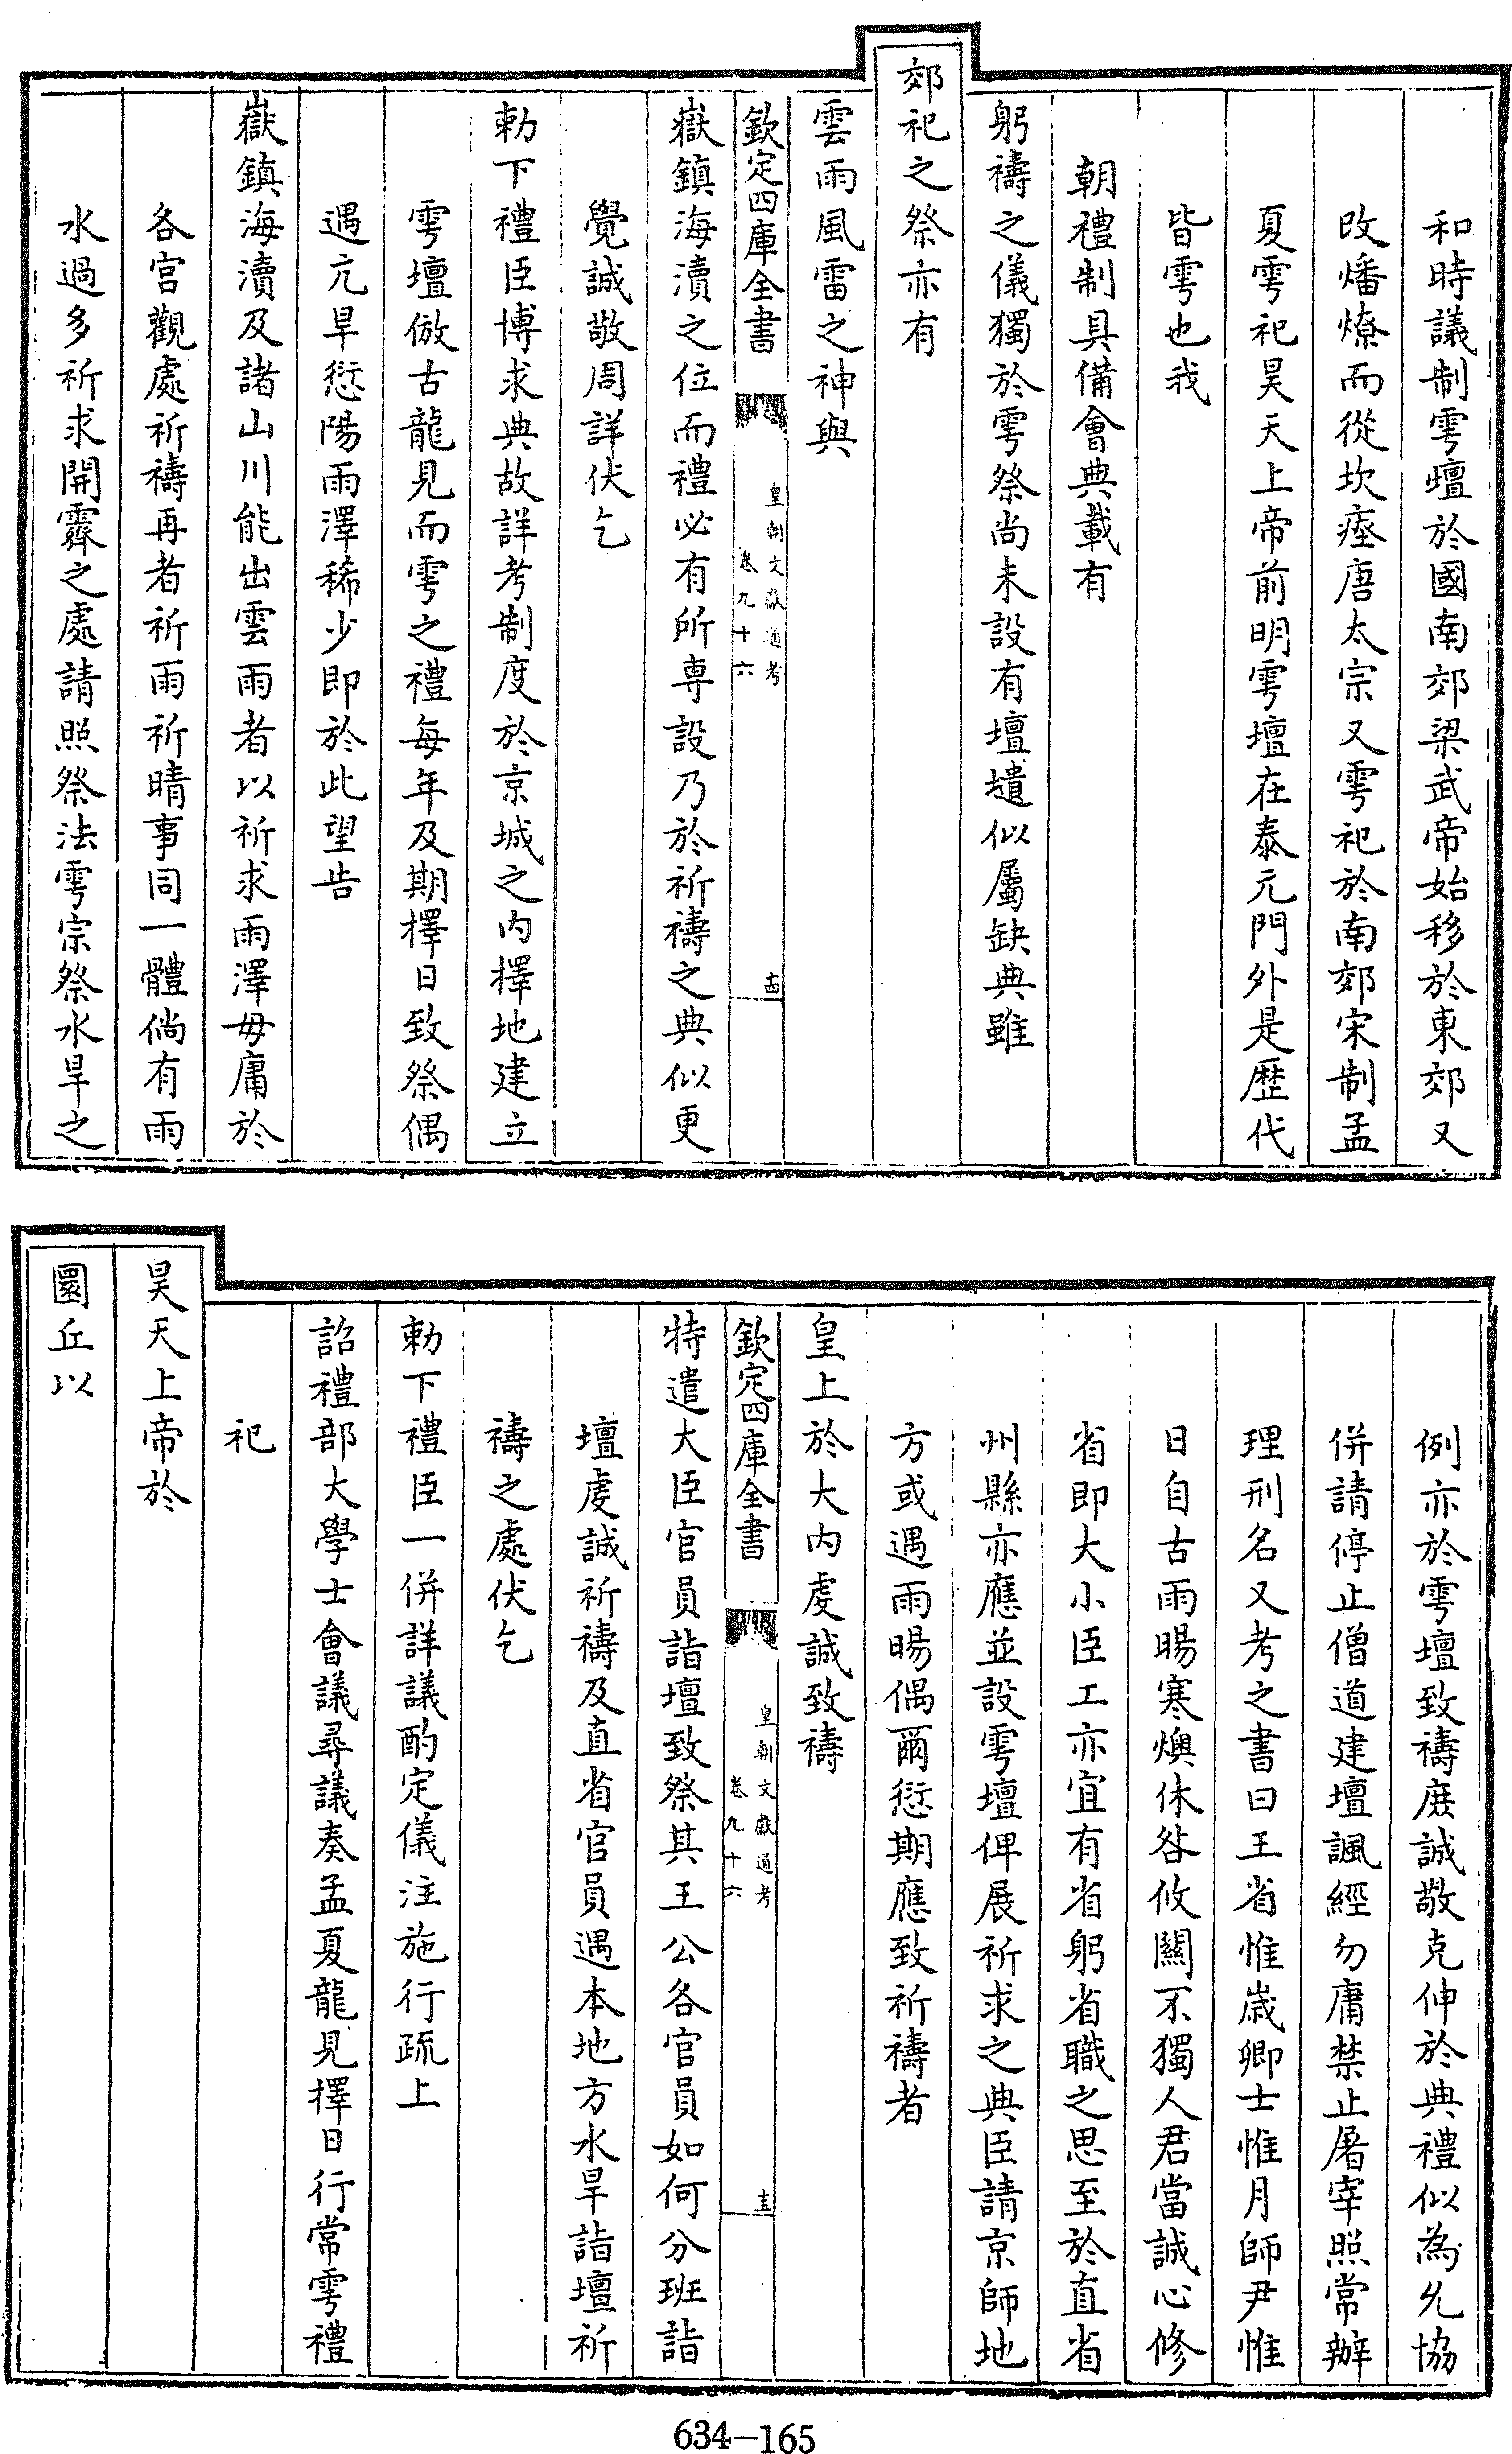 和時議制雩壇於國南郊梁武帝始移於東郊又
改燔燎而從坎瘞唐太宗又雩祀於南郊宋制孟
夏雩祀昊天上帝前明雩壇在泰元門外是歴代
皆雩也我
朝禮制具備會典載有
躬禱之儀獨於雩祭尚未設有壇壝似屬缺典雖
郊祀之祭亦有
雲雨風雷之神與
欽定四庫全書
皇朝文獻通考
卷九十六
十四
嶽鎮海瀆之位而禮必有所専設乃於祈禱之典似更
覺誠敬周詳伏乞
勅下禮臣博求典故詳考制度於京城之内擇地建立
雩壇倣古龍見而雩之禮每年及期擇日致祭偶
遇亢旱愆陽雨澤稀少即於此望告
嶽鎮海瀆及諸山川能出雲雨者以祈求雨澤毋庸於
各宫觀處祈禱再者祈雨祈晴事同一體倘有雨
水過多祈求開霽之處請照祭法雩宗祭水旱之
例亦於雩壇致禱庶誠敬克伸於典禮似為允協
併請停止僧道建壇諷經勿庸禁止屠宰照常辦
理刑名又考之書曰王省惟嵗卿士惟月師尹惟
日自古雨暘寒燠休咎攸關不獨人君當誠心修
省即大小臣工亦宜有省躬省職之思至於直省
州縣亦應並設雩壇俾展祈求之典臣請京師地
方或遇雨暘偶爾愆期應致祈禱者
皇上於大内虔誠致禱
欽定四庫全書
皇朝文獻通考
卷九十六
十五
特遣大臣官員詣壇致祭其王公各官員如何分班詣
壇虔誠祈禱及直省官員遇本地方水旱詣壇祈
禱之處伏乞
勅下禮臣一併詳議酌定儀注施行疏上
詔禮部大學士會議尋議奏孟夏龍見擇日行常雩禮
祀
昊天上帝於
圜丘以
634-165